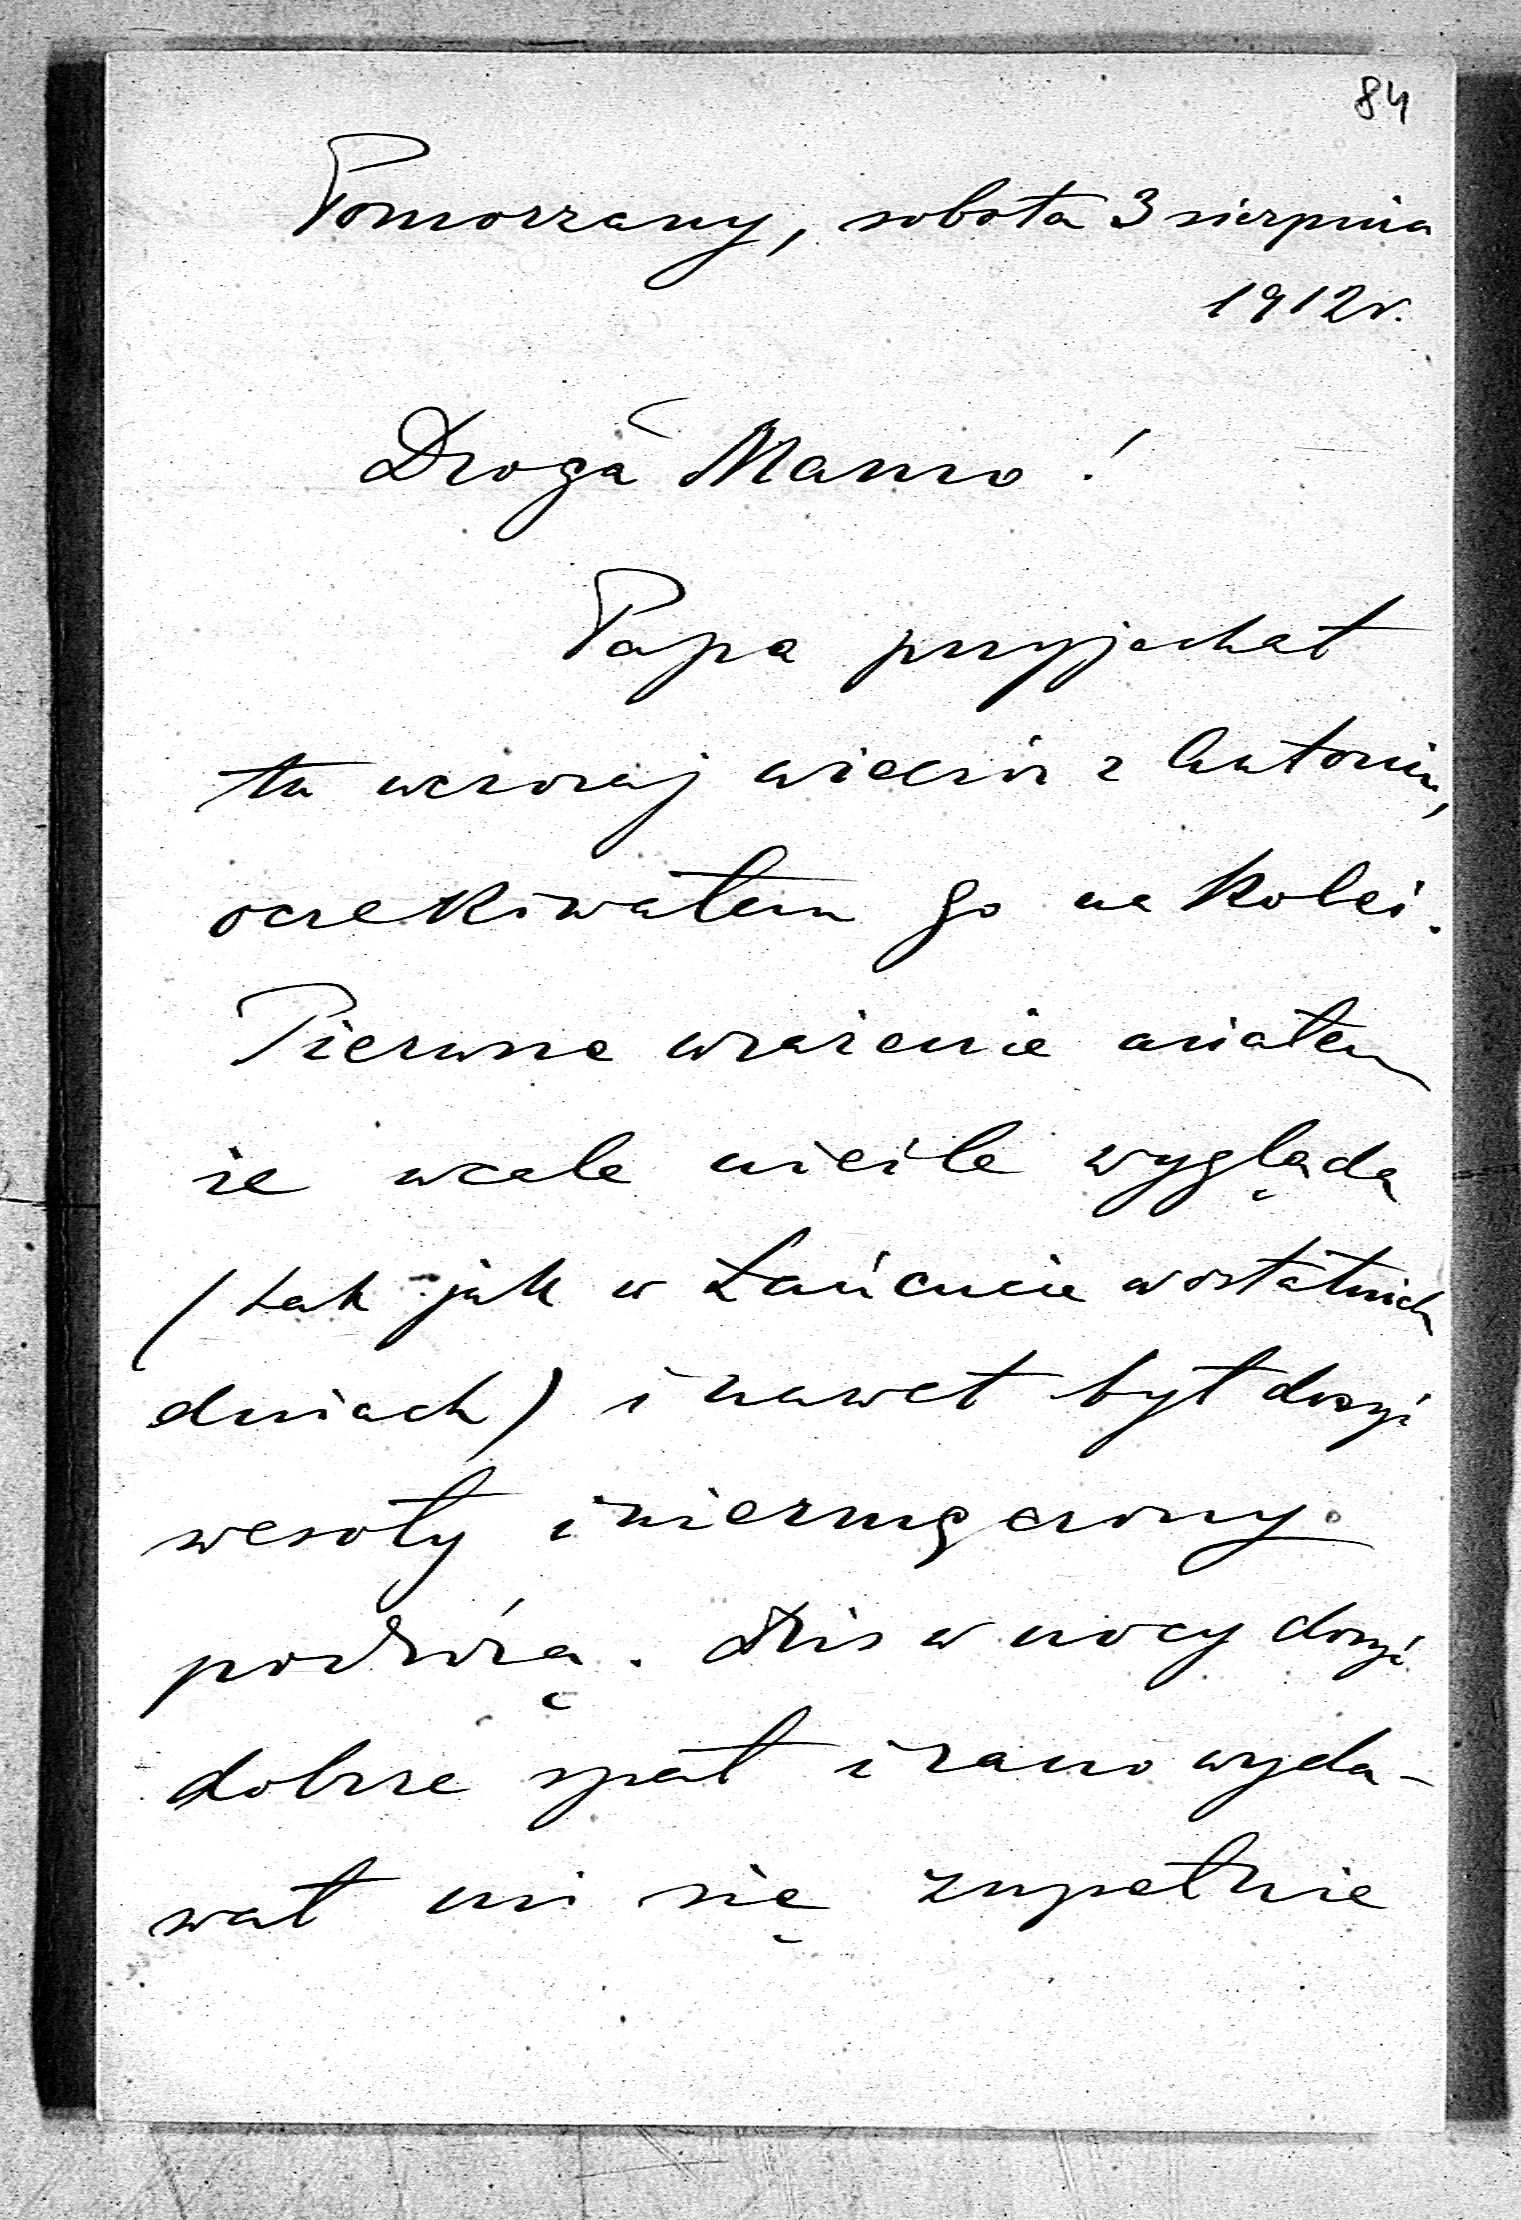 84
Pomorzany, sobota 3 sierpnia
1912 r.
Droga Mamo!
Papa przyjechał
tu wczoraj wieczór z Antonim,
oczekiwałem go na kolei.
Pierwsze wrażenie miałem
że wcale nieźle wygląda
(tak jak w Łańcucie w ostatnich
dniach) i nawet był dosyć
wesoły i niezmęczony
podróżą. Dziś w nocy dosyć
dobrze spał i rano wyda-
wał mi się zupełnie